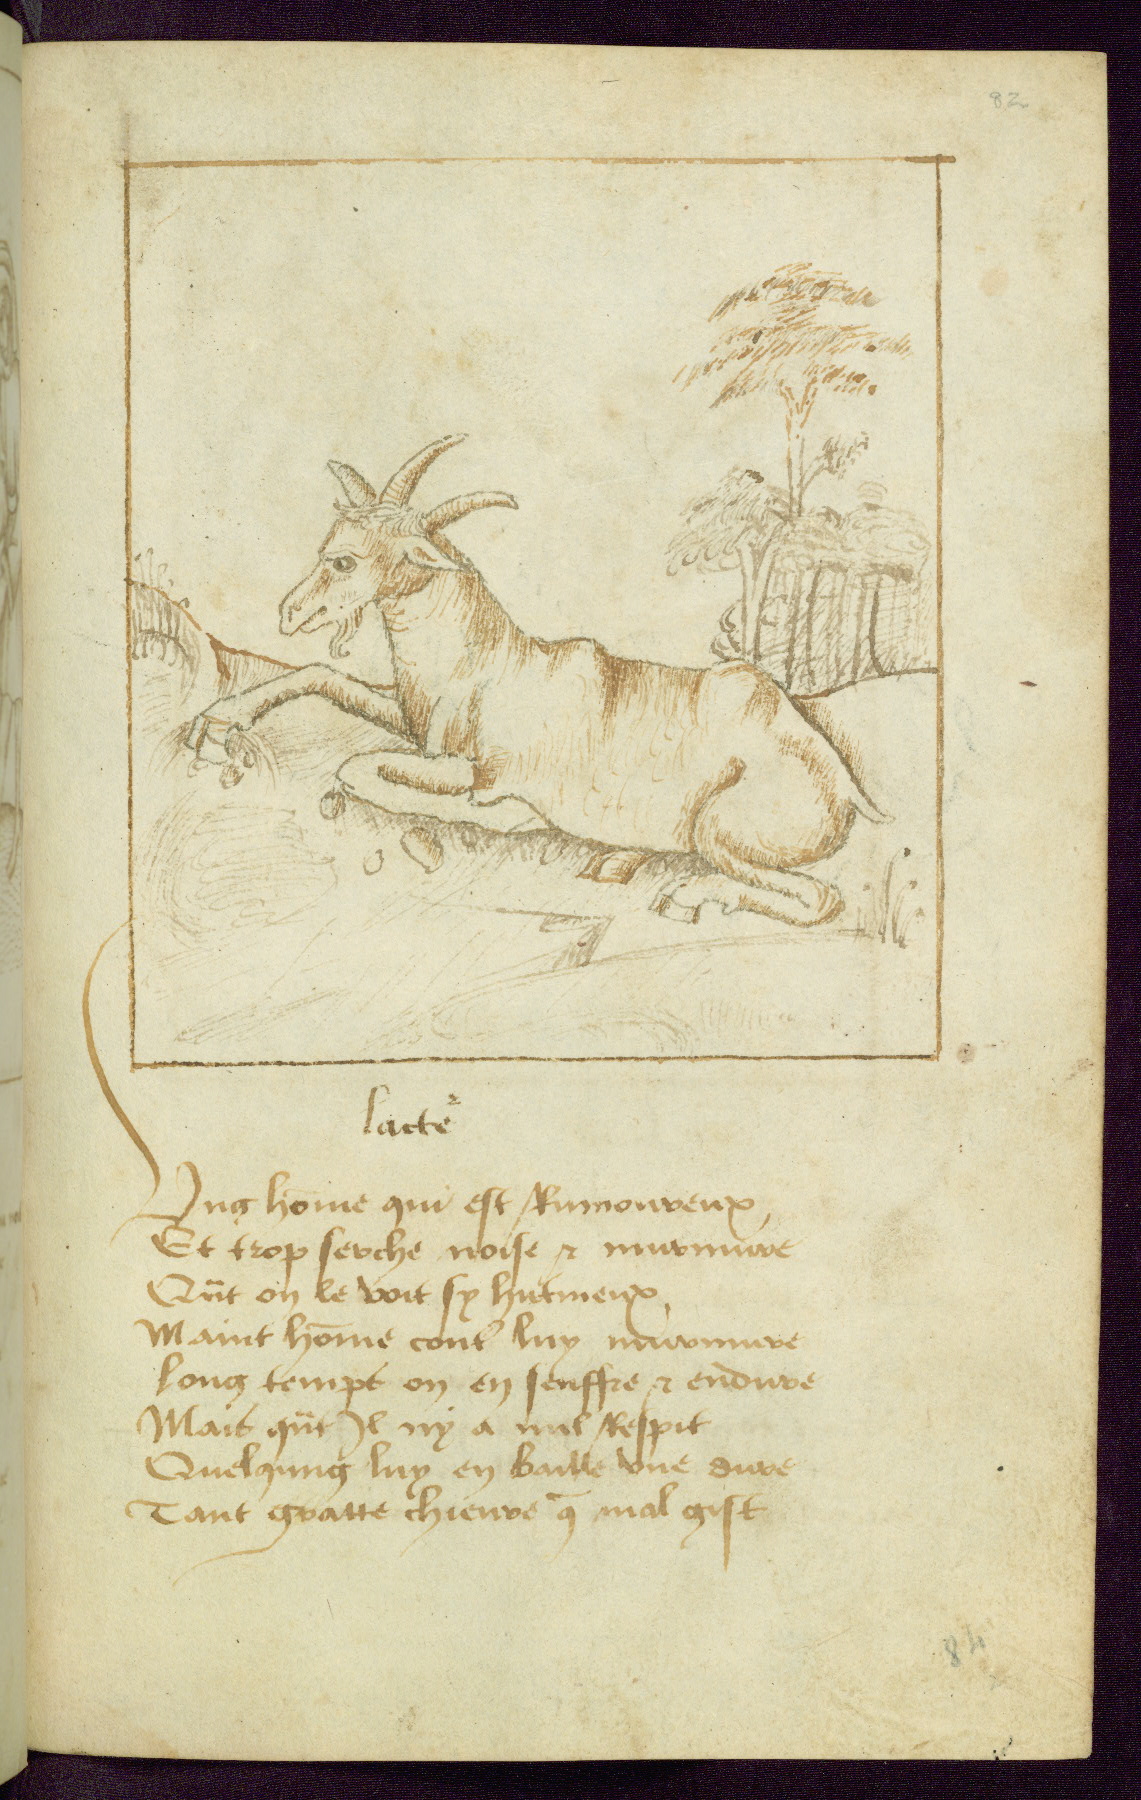 82
lacteʳ
Ung hōme qui est Rumoureux,
Et trop serche noise ⁊ murmure
Qūt on le voit sy hutineux,
Maint hōme cont' luy murmure
Long temps on en seuffre ⁊ endure
Mais qūt Il ny a nul Respit
Quelqung luy en baille vne dure
Tant gratte chieure q̄ mal gist
84